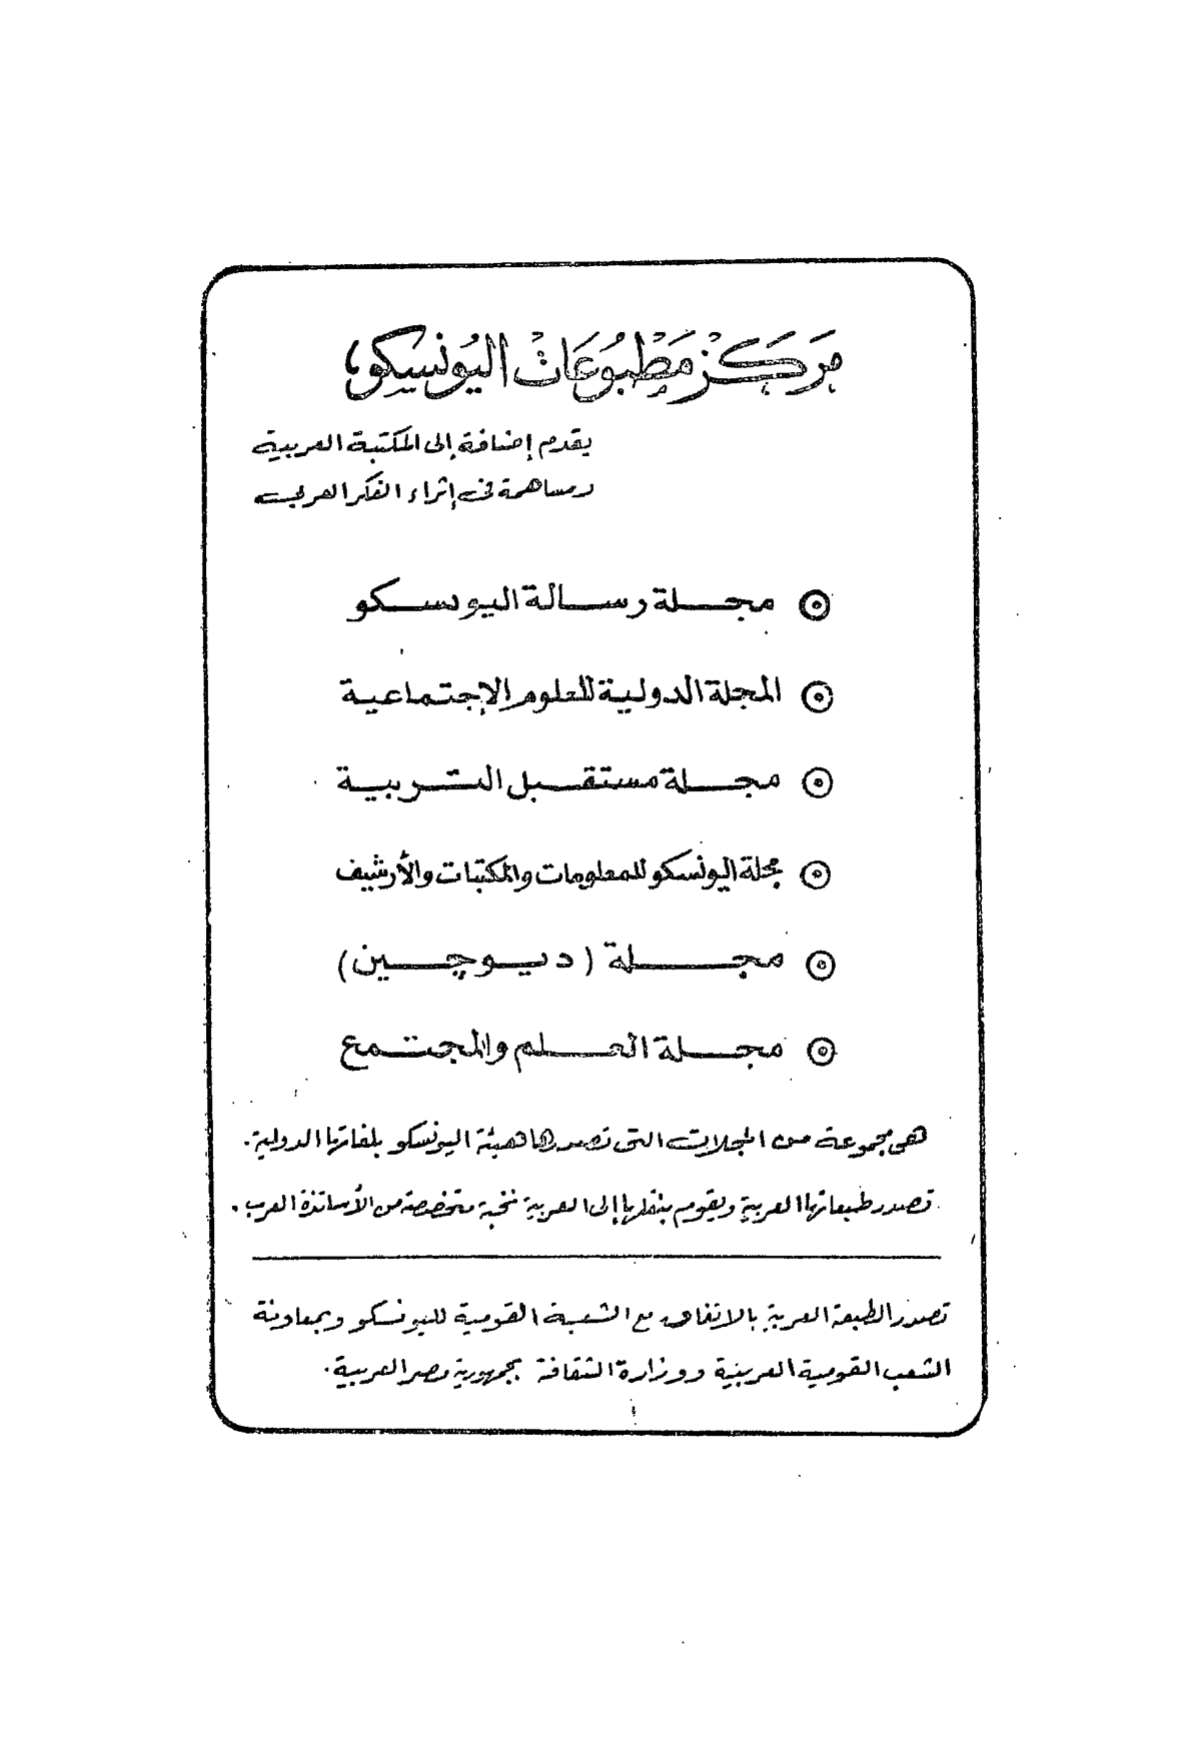 مركز مطبوعات اليونسكو،
يقدم إضافة إلى المكتبة العربية
ومساهمة في إثراء الفكر العربي
◉ مجلة رسالة اليونسكو
◉ المجلة الدولية للعلوم الإجتماعية
◉ مجلة مستقبل التربية
◉ مجلة اليونسكو للمعلومات والمكتبات والأرشيف
◉ مجلة (ديوچين)
◉ مجلة العلم والمجتمع
هى مجموعة من المجلات التى تصدرها هيئة اليونسكو بلغاتها الدولية.
تصدر طبعاتها العربية ويقوم بنقلها إلى العربية نخبة متخصصة من الأساتذة العرب.
تصدر الطبعة العربية بالاتفاق مع الشعبة القومية لليونسكو وبمعاونة
الشعب القومية العربية ووزارة الثقافة بجمهورية مصر العربية.